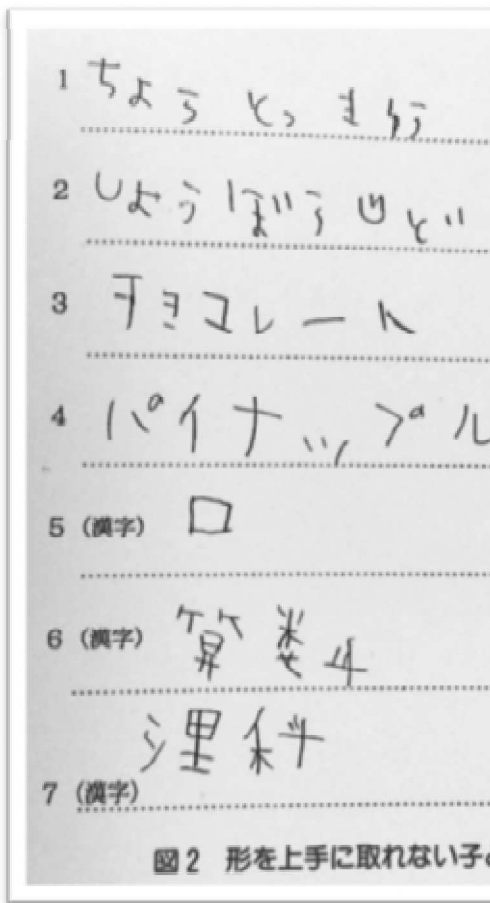 1 ちょうとっきう
2 しょうぼうじど
3 チョコレート
4 パイナップル
5 (漢字) 口
6 (漢字) 算数
7 (漢字) 理科
図2 形を上手に取れない子